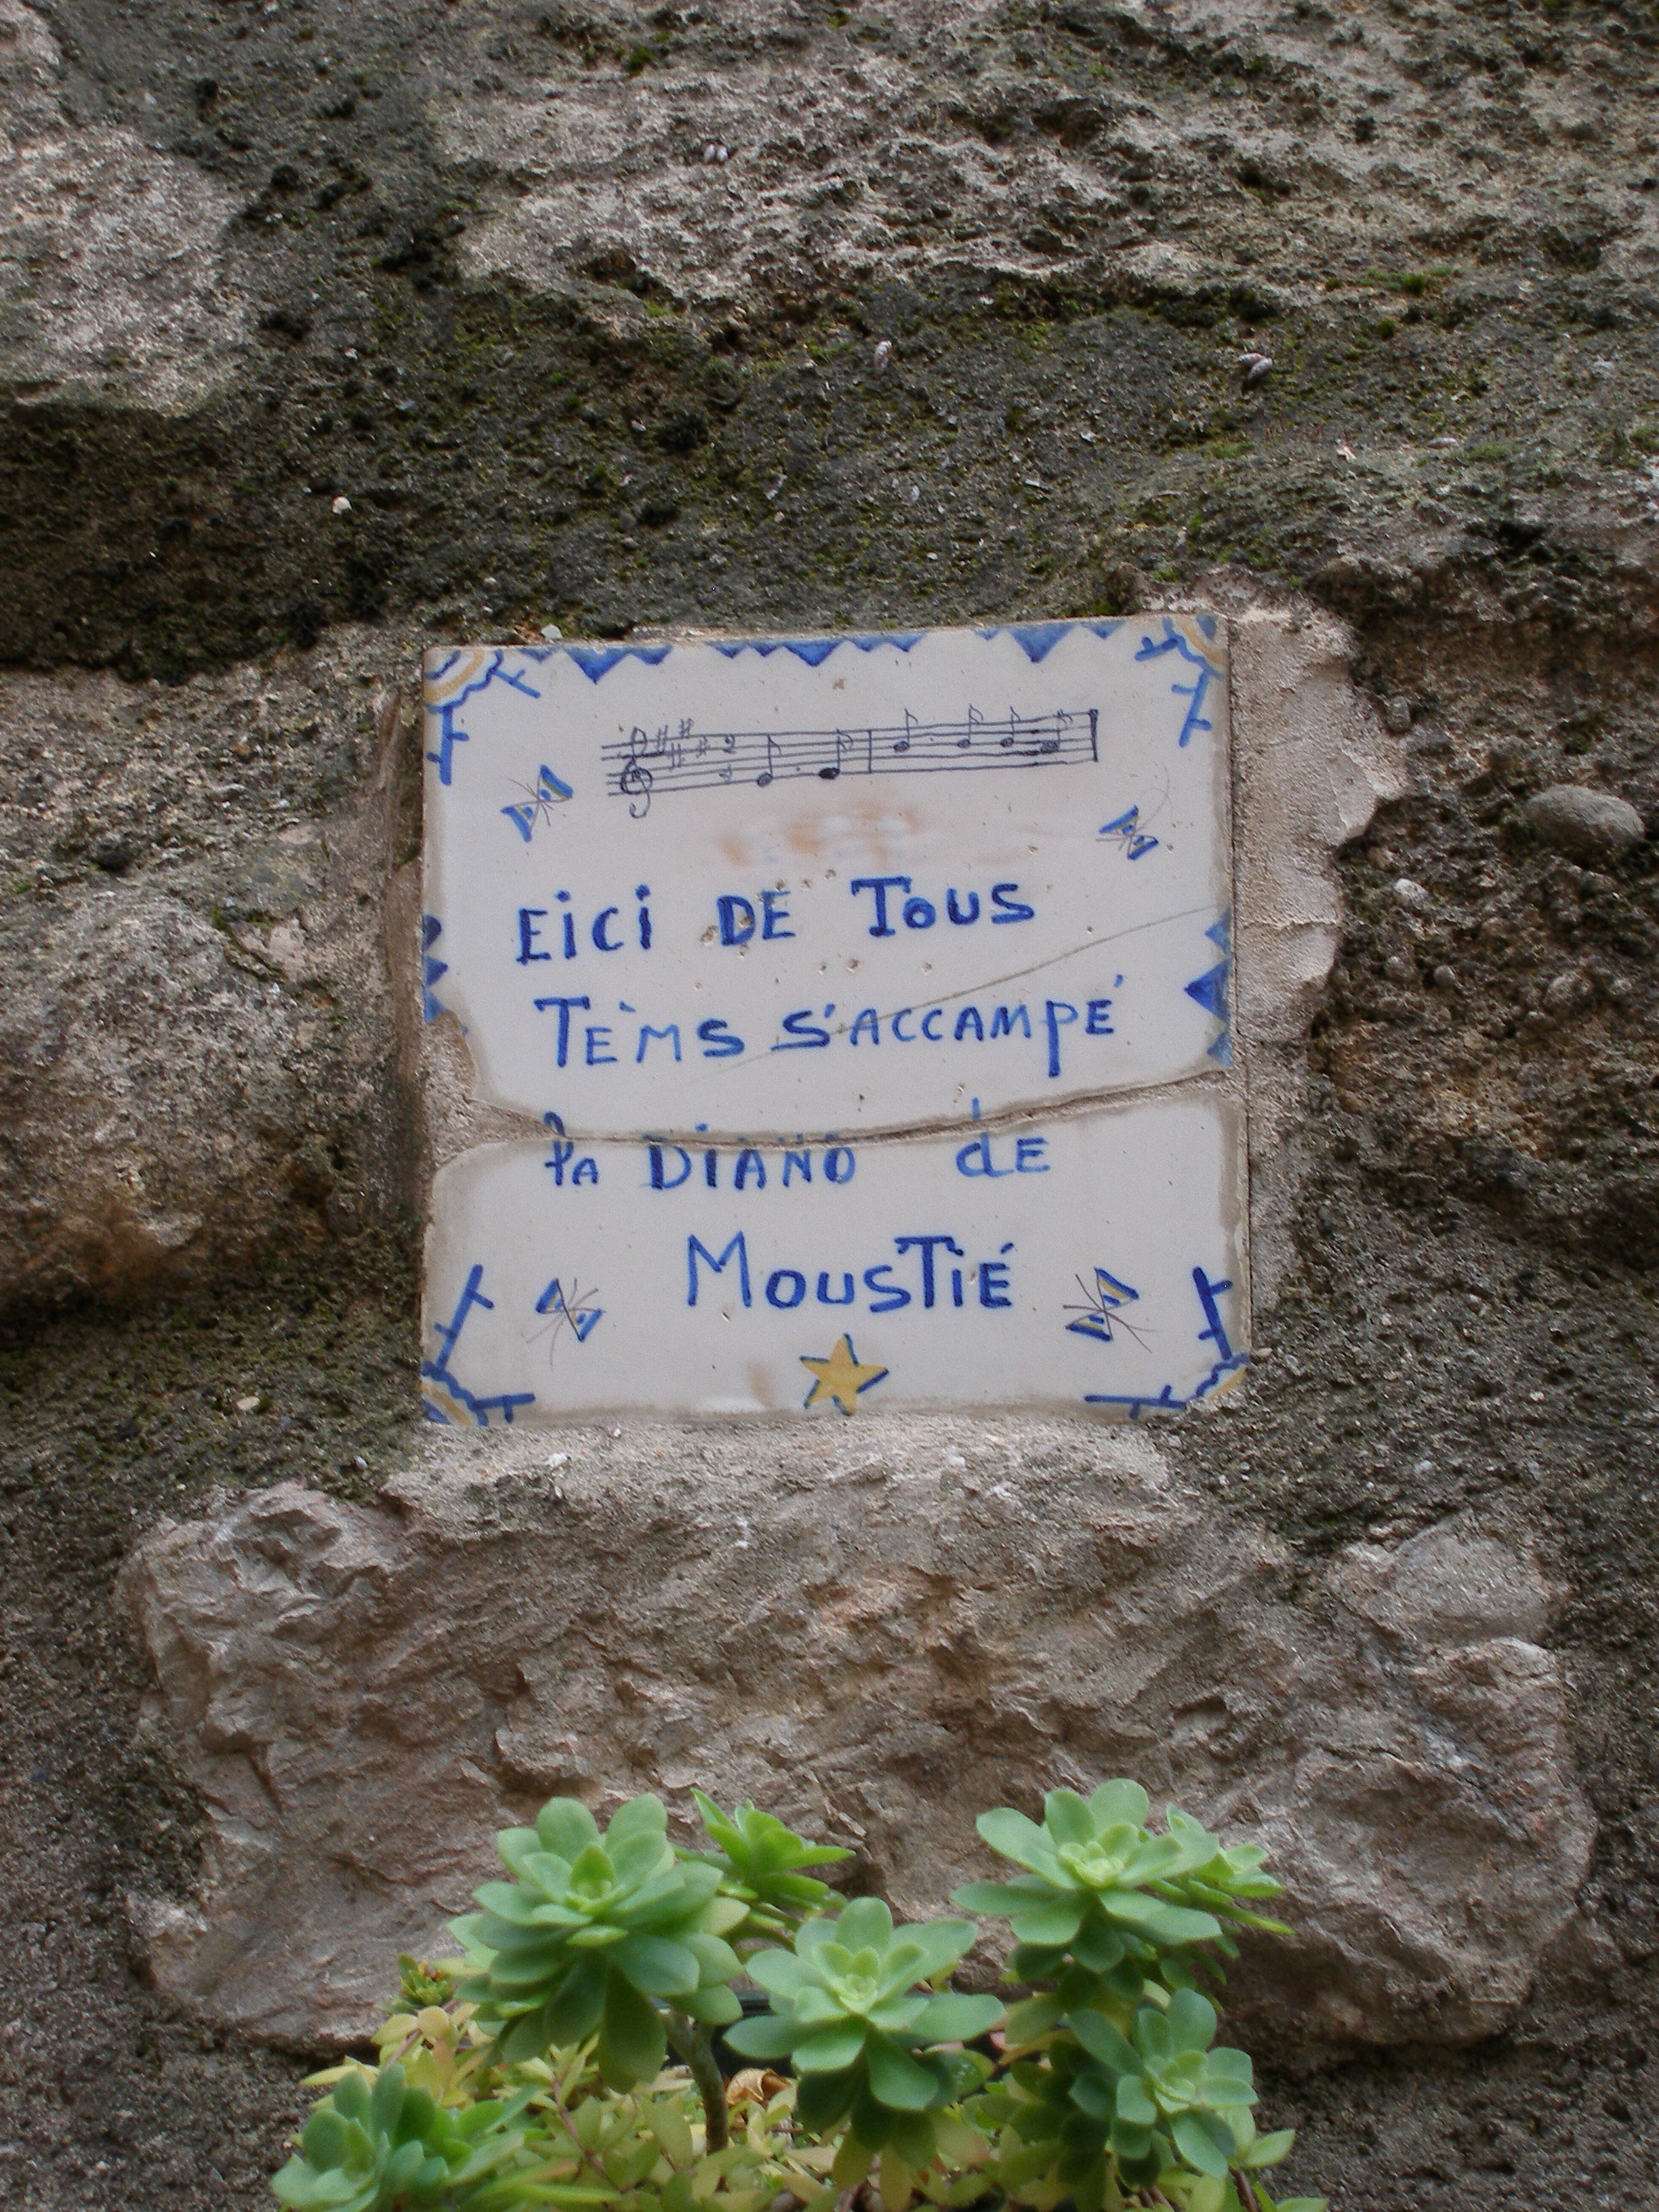 EiCi DE TOUS
TÈMS S'ACCAMPÉ
la DiANO de
MOUSTiÉ